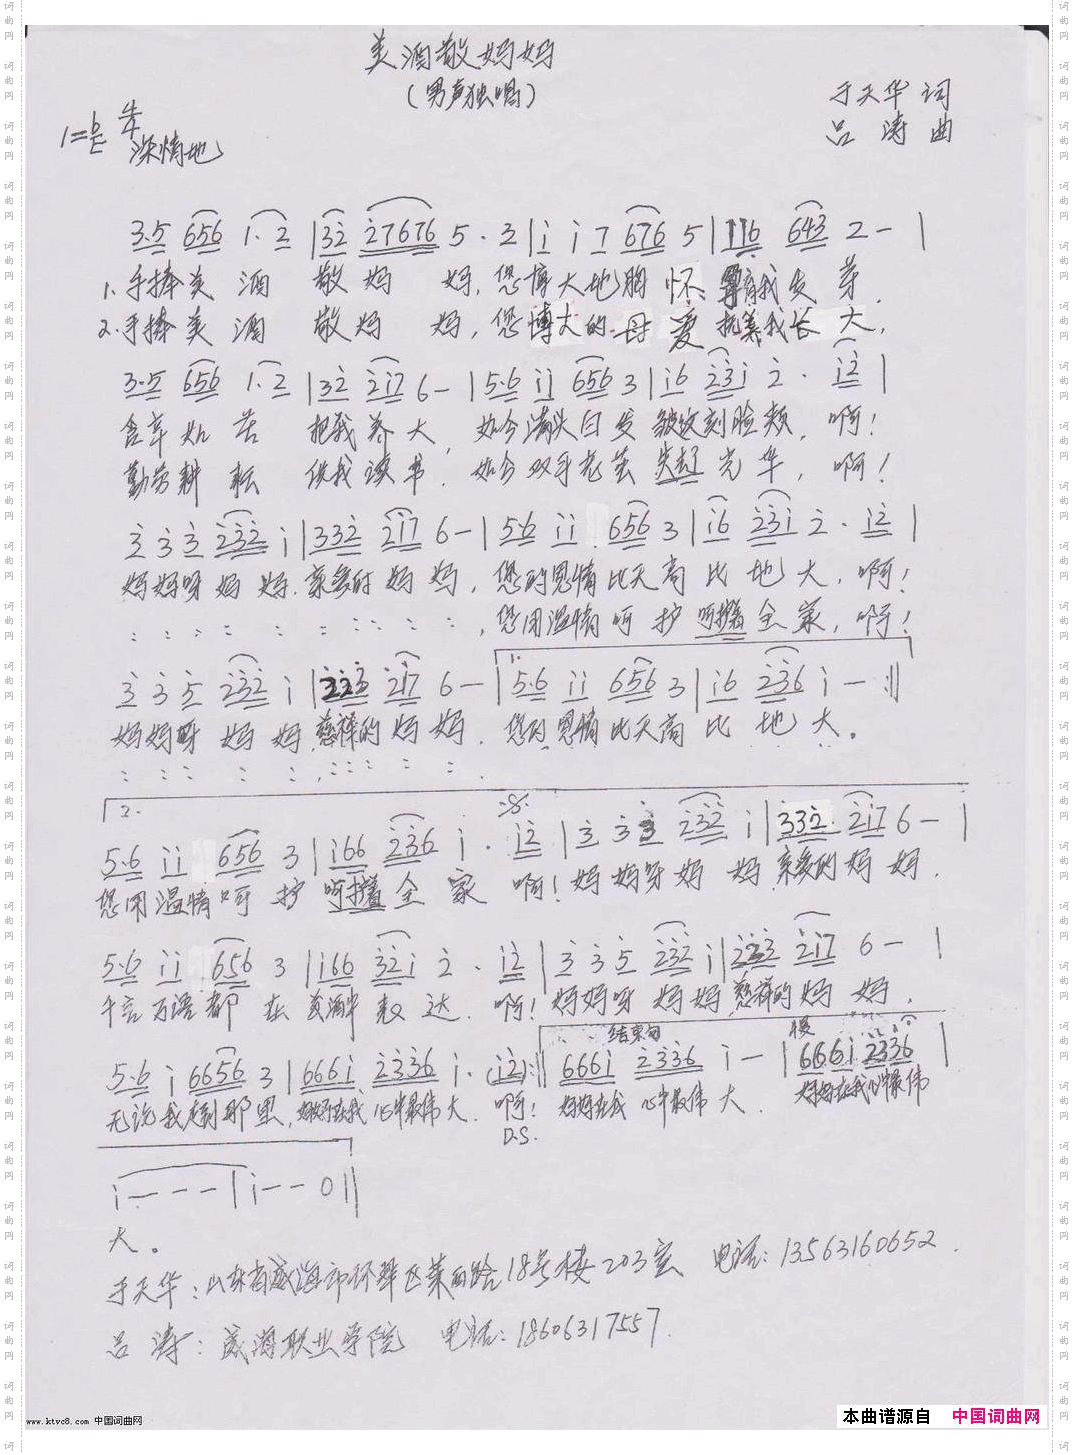 美酒敬妈妈
(男声独唱)
于天华 词
吕涛 曲
1=bE 4/4
深情地
3·5 656 1·2 | 32 27676 5·3 | i i 7 676 5 | 116 643 2 - |
1.手捧美酒 敬妈妈,您博大地胸怀 孕育我发芽,
2.手捧美酒 敬妈妈,您博大的母爱 抚养我长大,
3·5 656 1·2 | 32 217 6 - | 5·6 ii 656 3 | i6 23i 2· i2 |
含辛如苦 把我养大,如今满头白发 皱纹刻脸颊,啊!
勤劳耕耘 供我读书,如今双手老茧 失去光华,啊!
3 3 3 232 i | 332 217 6 - | 5·6 ii 656 3 | i6 23i 2· i2 |
妈妈呀妈妈,亲爱的妈妈,您的恩情比天高比地大,啊!
您用温情呵护 呵护着全家,啊!
3 3 5 232 i | 223 217 6 - | 1. 5·6 ii 656 3 | i6 236 i - :||
妈妈呀妈妈,慈祥的妈妈,您的恩情比天高比地大。
2.
5·6 ii 656 3 | i66 236 i· i2 | 3 3 3 232 i | 332 217 6 - |
您用温情呵护 呵护着全家 啊!妈妈呀妈妈 亲爱的妈妈,
5·6 ii 656 3 | i66 32i 2· i2 | 3 3 5 232 i | 223 217 6 - |
千言万语都在 美酒中表达,啊!妈妈呀妈妈,慈祥的妈妈,
结束句
慢
5·6 i 6656 3 | 666i 2336 i· (i2) :|| 666i 2336 i - | 666i 2336 |
无论我走到那里,妈妈在我心中最伟大,啊!妈妈在我心中最伟大,妈妈在我心中最伟
D.S.
i - - - | i - - 0 ||
大。
于天华:山东省威海市环翠区菜园路18号楼203室 电话:13563160652.
吕涛:威海职业学院 电话:18606317557.
www.ktvc8.com 中国词曲网
本曲谱源自 中国词曲网